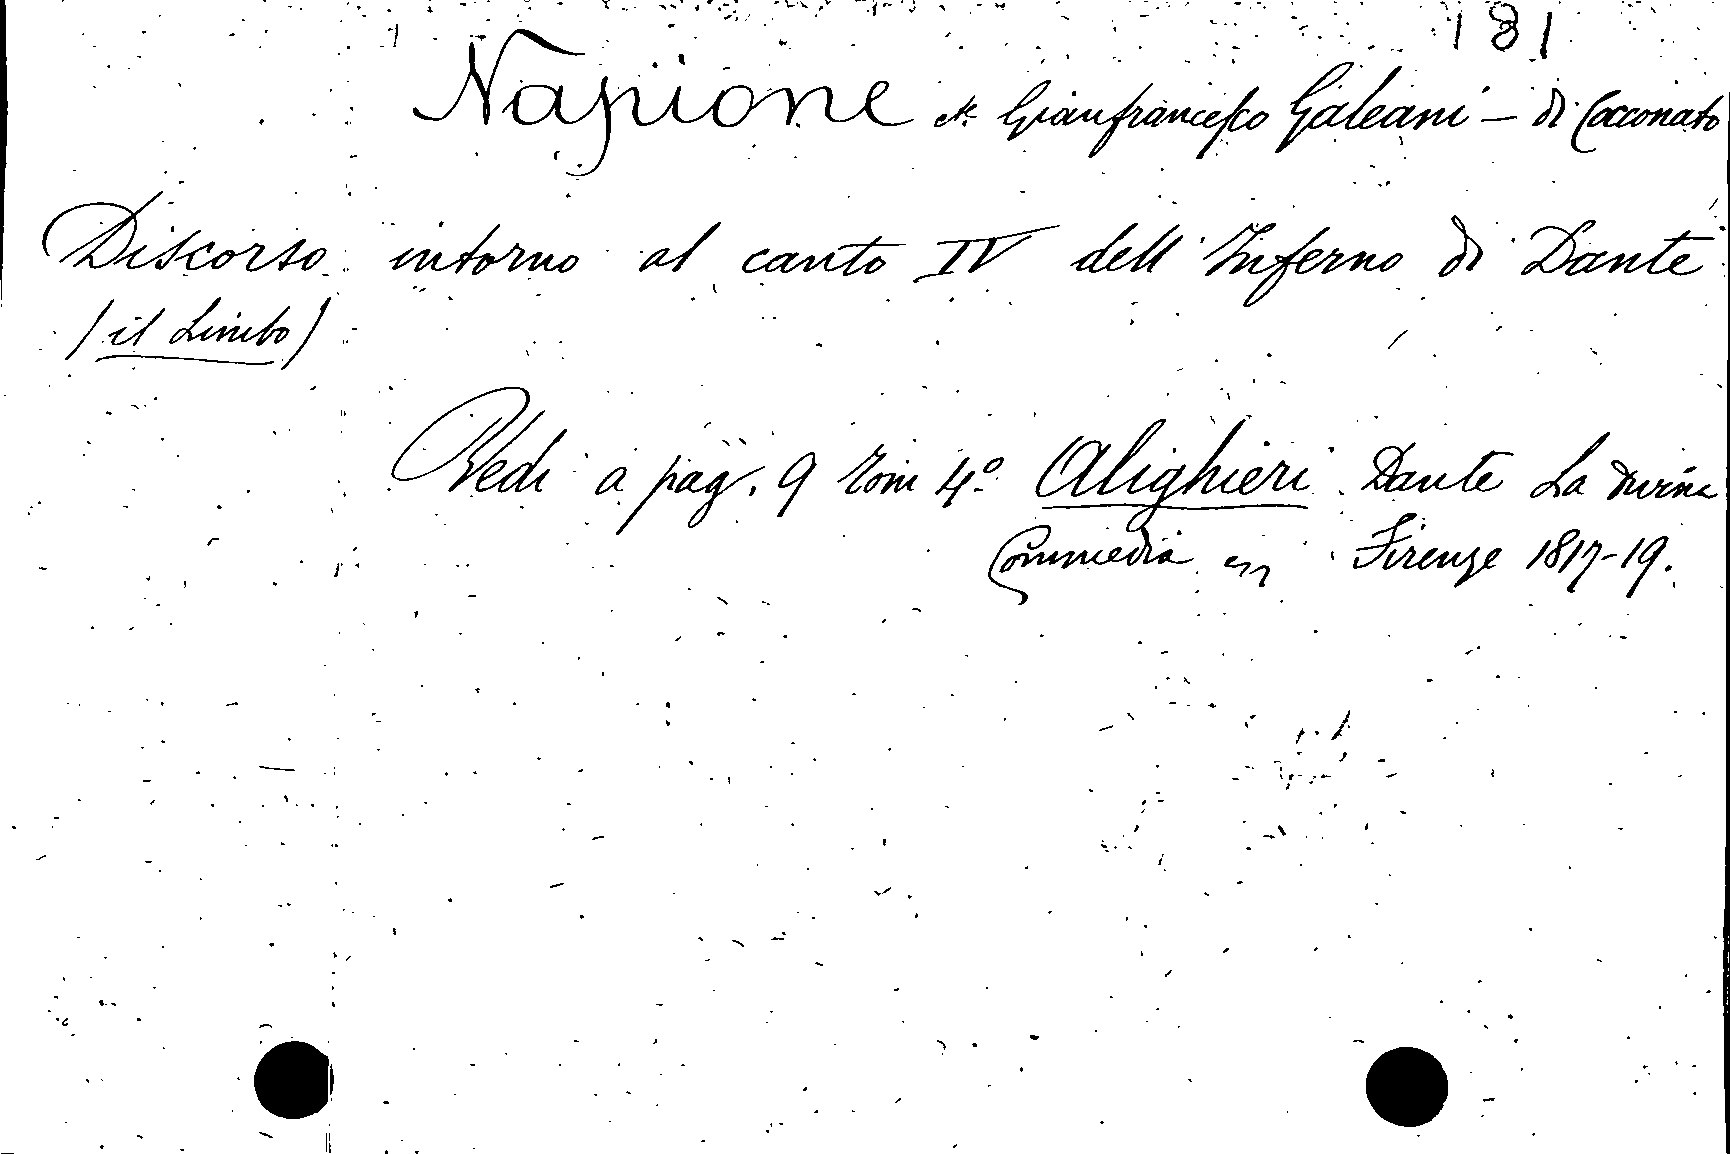 181
Napione Gianfrancesco Galeani - di Cocconato
Discorso intorno al canto IV dell'Inferno di Dante
(il Limbo)
Vedi a pag. 9 Tom 4º Alighieri Dante La Divina
Commedia Firenze 1817-19.